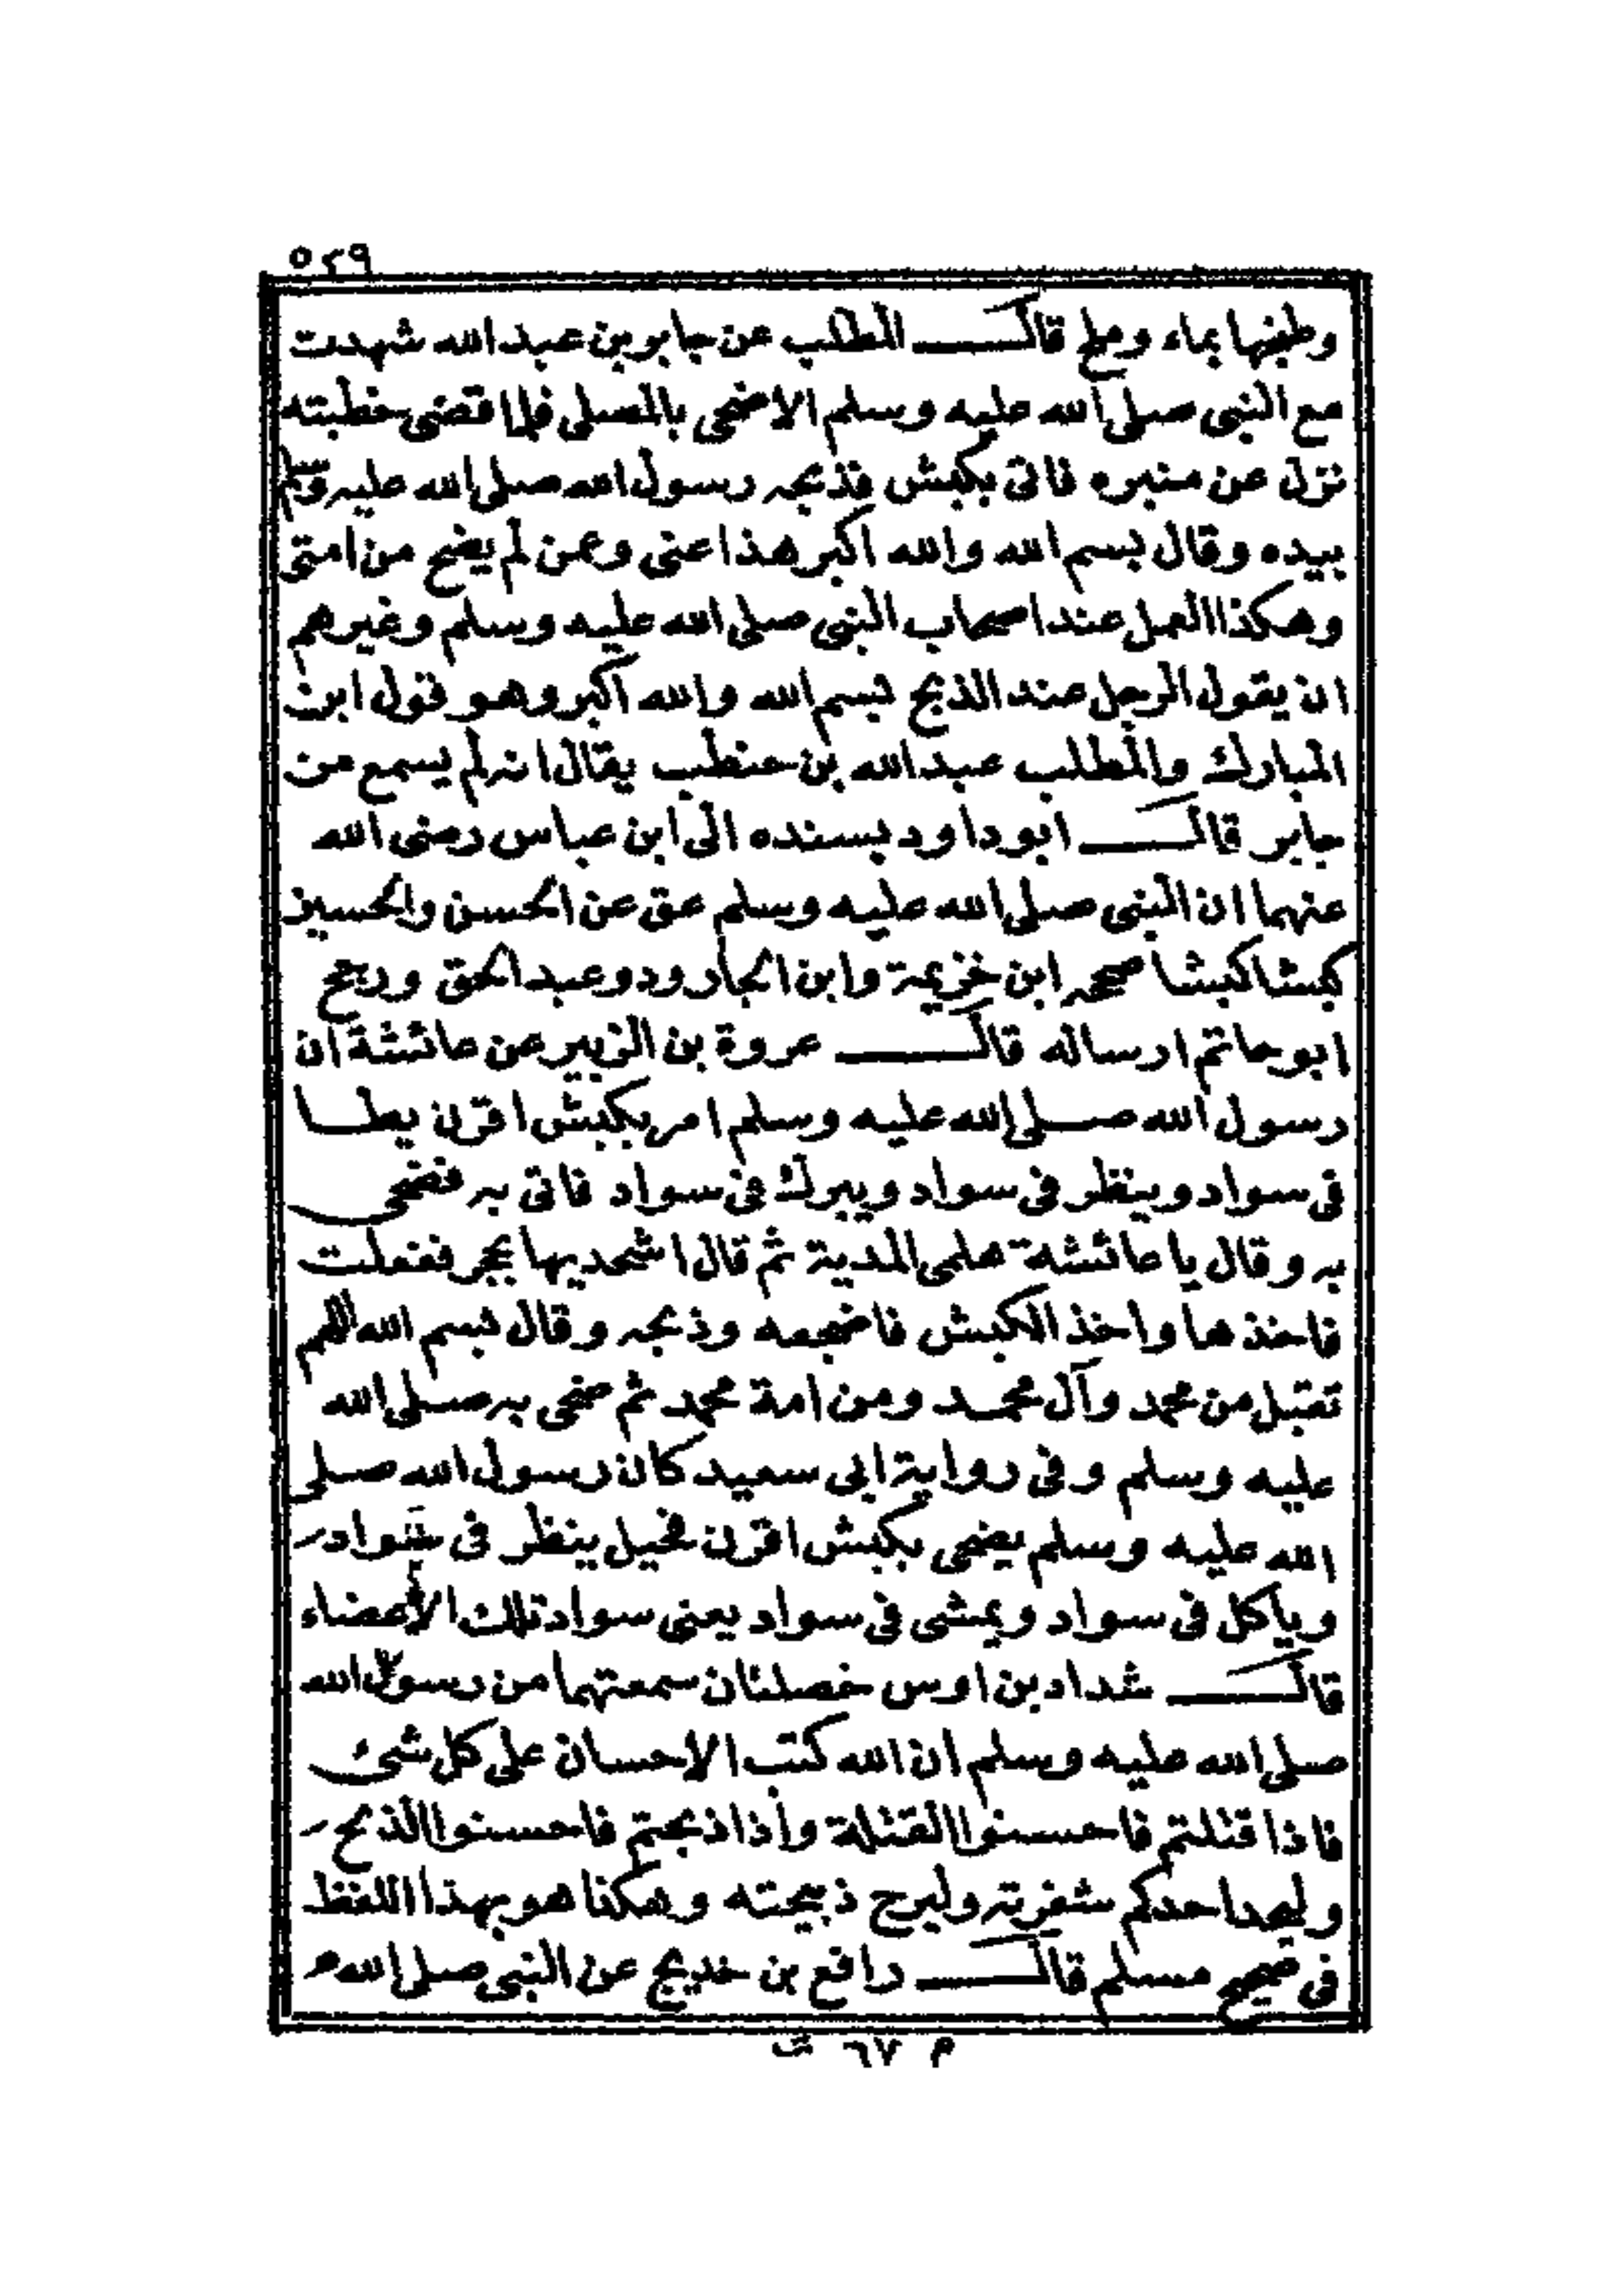 ٥٢٩
وطبخها بماء وملح قال المطلب عن جابر بن عبد الله شهدت
مع النبى صلى الله عليه وسلم الاضحى بالمصلى فلما قضى خطبته
نزل عن منبره فاتى بكبش فذبحه رسول الله صلى الله عليه وسلم
بيده وقال بسم الله والله اكبر هذا عنى وعمن لم يضح من امتى
وهكذا العمل عند اصحاب النبى صلى الله عليه وسلم وغيرهم
ان يقول الرجل عند الذبح بسم الله والله اكبر وهو قول ابن
المبارك والمطلب عبد الله بن حنطب يقال انه لم يسمع من
جابر قال ابو داود بسنده الى ابن عباس رضى الله
عنهما ان النبى صلى الله عليه وسلم عق عن الحسن والحسين
كبشا كبشا صححه ابن خزيمة وابن الجارود وعبد الحق ورجح
ابو حاتم ارساله قال عروة بن الزبير عن عائشة ان
رسول الله صلى الله عليه وسلم امر بكبش اقرن يطا
فى سواد وينظر فى سواد ويبرك فى سواد فاتى به فضحى
به وقال يا عائشة هلمى المدية ثم قال اشحديها بحجر ففعلت
فاخذها واخذ الكبش فاضجعه وذبحه وقال بسم الله اللهم
تقبل من محمد وآل محمد ومن امة محمد ثم ضحى به صلى الله
عليه وسلم وفى رواية ابى سعيد كان رسول الله صلى
الله عليه وسلم يضحى بكبش اقرن فحيل ينظر فى سواد
وياكل فى سواد ويمشى فى سواد يعنى سواد تلك الأعضاء
قال شداد بن اوس خصلتان سمعتهما من رسول الله
صلى الله عليه وسلم ان الله كتب الاحسان على كل شئ
فاذا قتلتم فاحسنوا القتلة واذا ذبحتم فاحسنوا الذبح
وليحد احدكم شفرته وليرح ذبيحته وهكذا هو بهذا اللفظ
فى صحيح مسلم قال رافع بن خديج عن النبى صلى الله
م ٦٧ ت